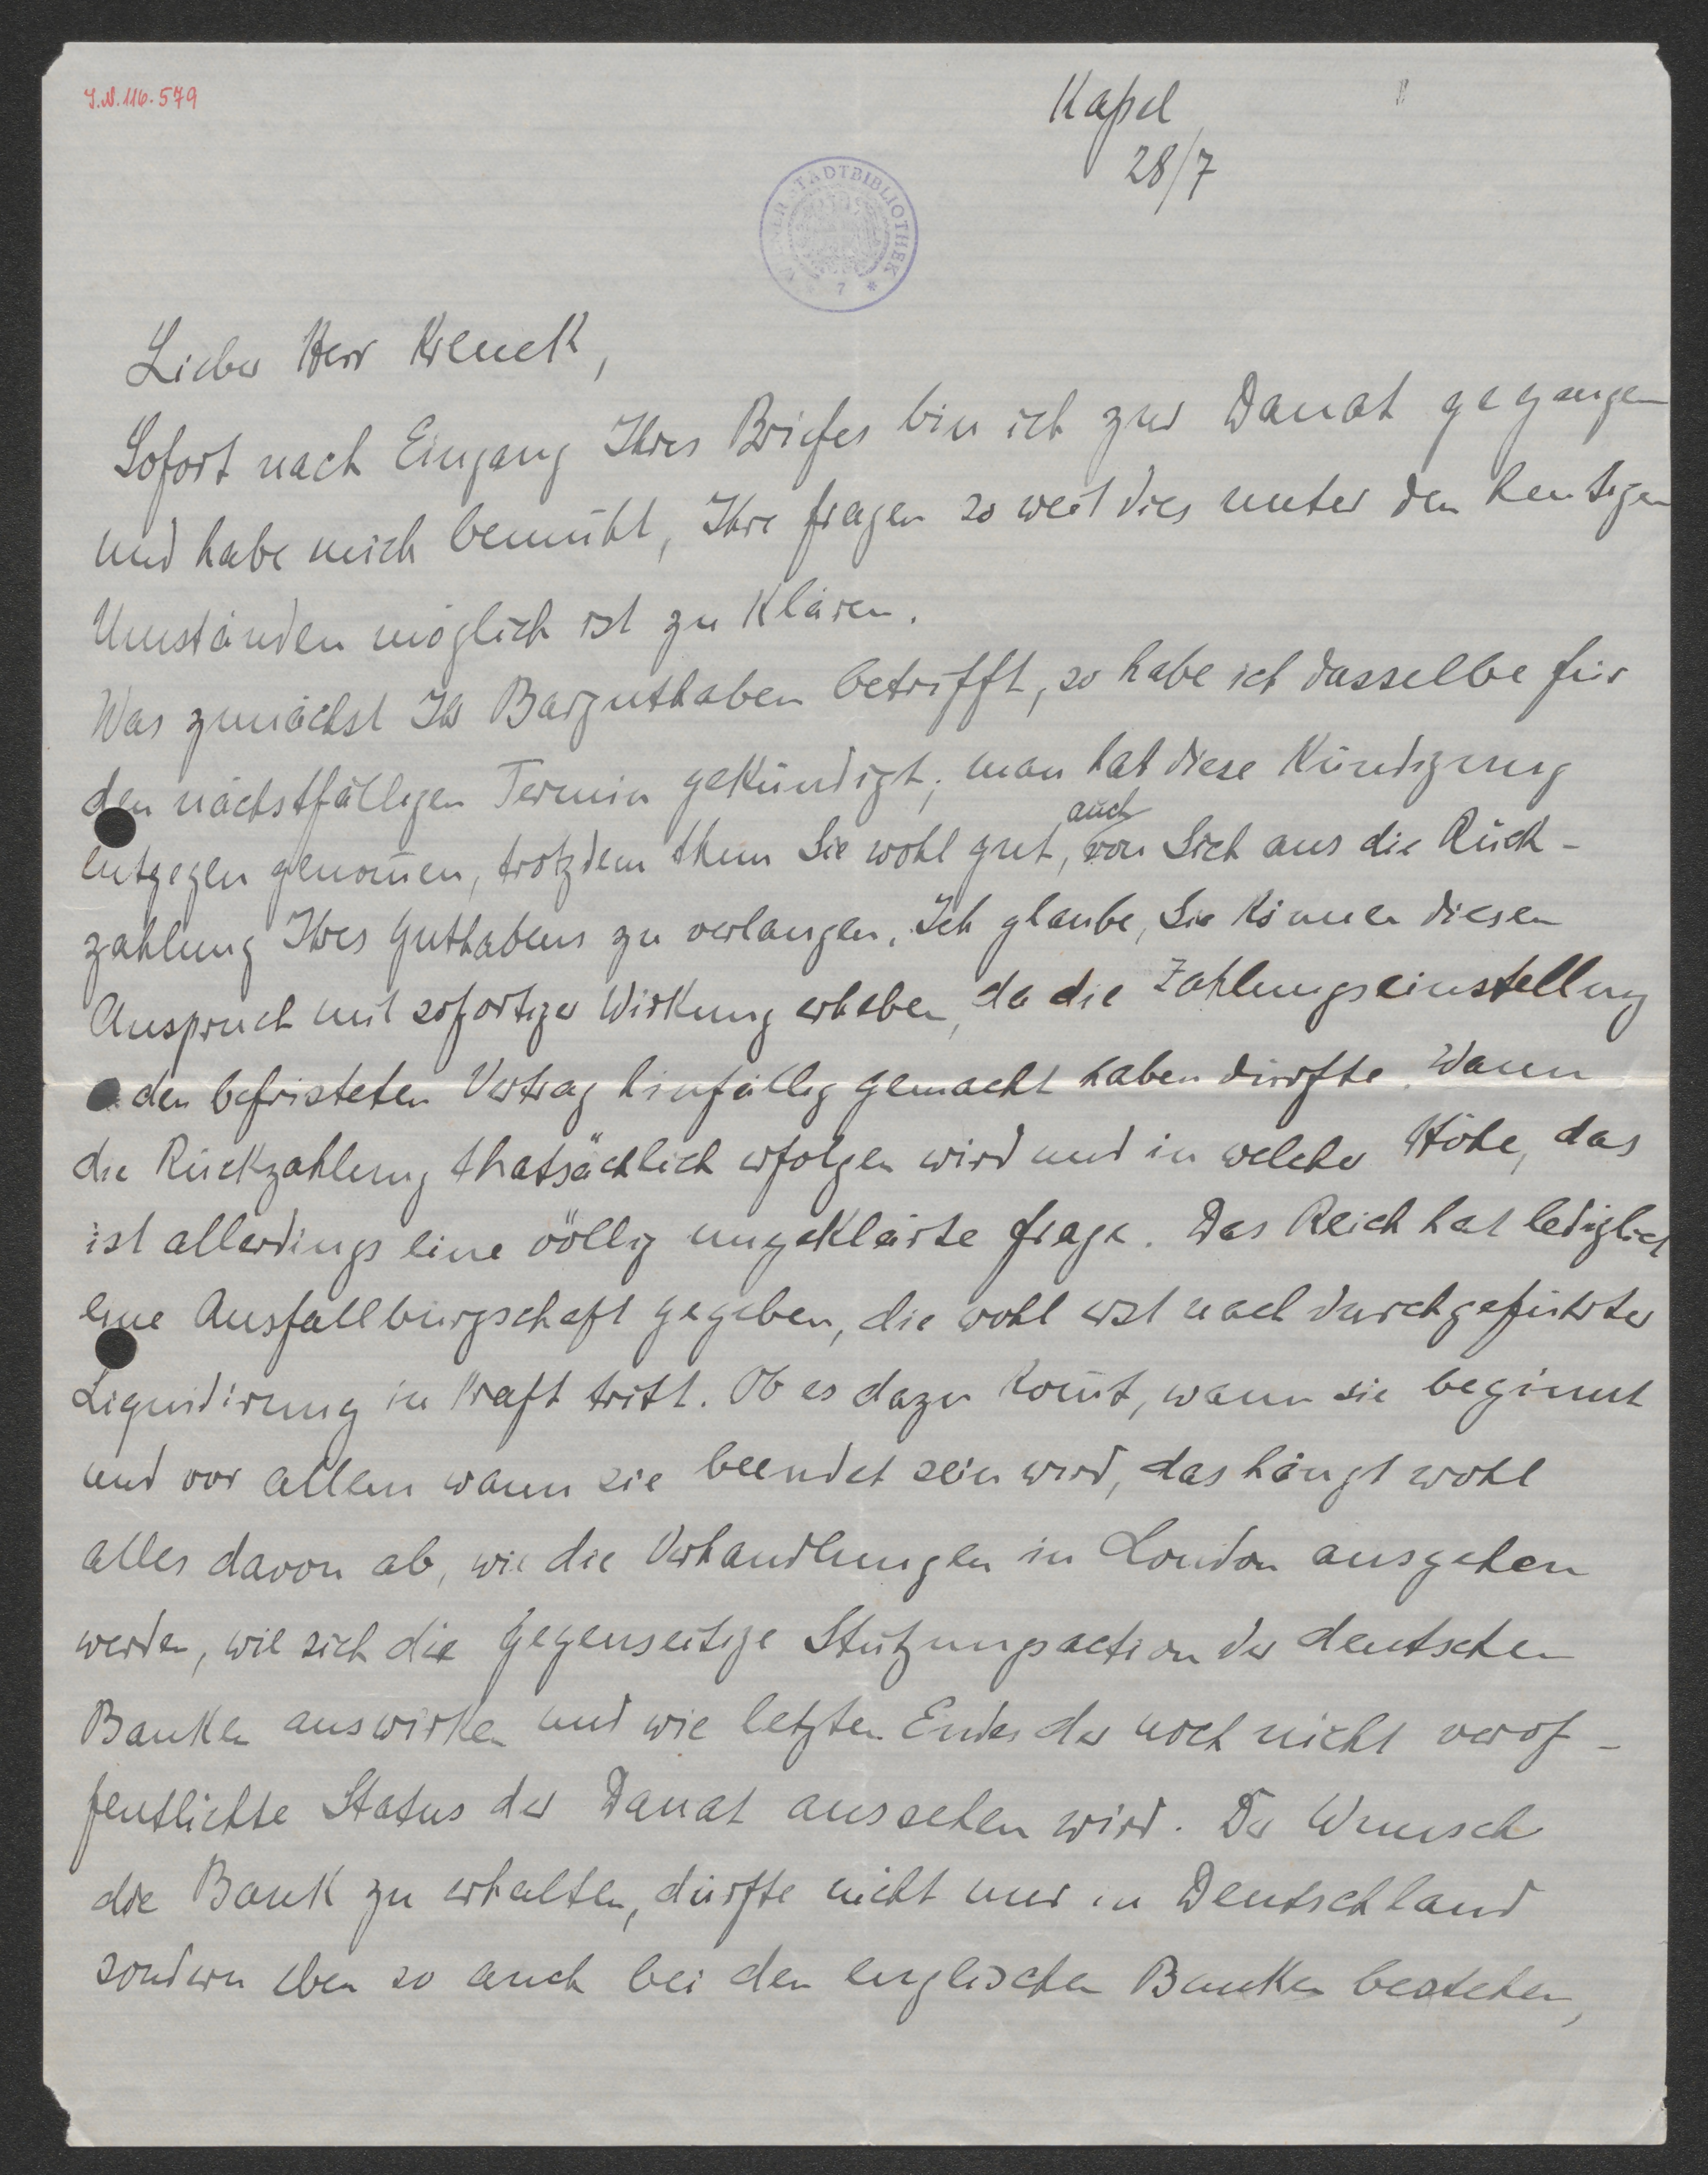 I.N. 116.579
Kaßel
28/7
WIENER STADTBIBLIOTHEK
* 7 *
Lieber Herr Krenek,
Sofort nach Eingang Ihres Briefes bin ich zur Danat gegangen
und habe mich bemüht, Ihre Fragen so weit dies unter den heutigen
Umständen möglich ist zu klären.
Was zunächst Ihr Barguthaben betrifft, so habe ich dasselbe für
den nächstfälligen Termin gekündigt; man hat diese Kündigung
auch
entgegen genom̄en, trotzdem thun Sie wohl gut, von Sich aus die Rück-
zahlung Ihres Guthabens zu verlangen. Ich glaube, Sie können diesen
Anspruch mit sofortiger Wirkung erheben, da die Zahlungseinstellung
den befristeten Vertrag hinfällig gemacht haben dürfte. Wann
die Rückzahlung thatsächlich erfolgen wird und in welcher Höhe, das
ist allerdings eine völlig ungeklärte Frage. Das Reich hat lediglich
eine Ausfallbürgschaft gegeben, die wohl erst nach durchgeführter
Liquidirung in Kraft tritt. Ob es dazu kom̄t, wann sie beginnt
und vor allem wann sie beendet sein wird, das hängt wohl
alles davon ab, wie die Verhandlungen in London ausgehen
werden, wie sich die gegenseitige Stützungsaction der deutschen
Banken auswirken und wie letzten Endes der noch nicht veröf-
fentlichte Status der Danat aussehen wird. Der Wunsch
die Bank zu erhalten, dürfte nicht nur in Deutschland
sondern eben so auch bei den englischen Banken bestehen,